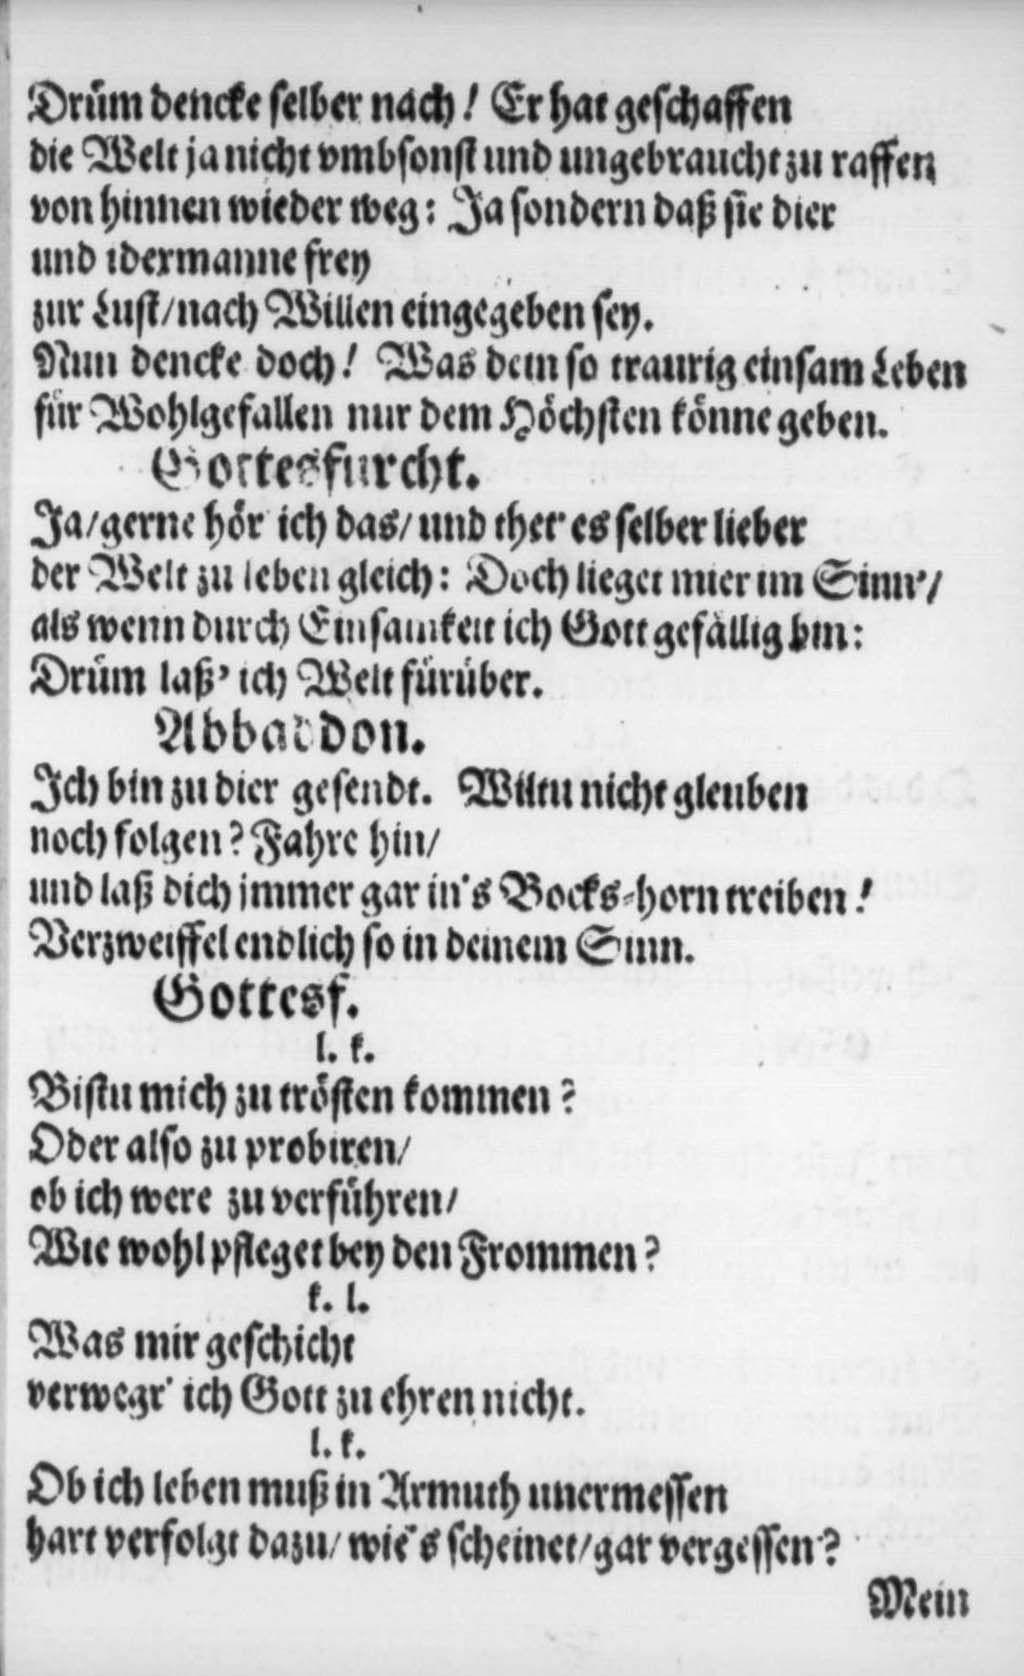 Drüm dencke selber nach! Er hat geschaffen
die Welt ja nicht vmbsonst und ungebraucht zu raffen
von hinnen wieder weg: Ja sondern daß sie dier
und idermanne frey
zur Lust/nach Willen eingegeben sey.
Nun dencke doch! Was dein so traurig einsam Leben
für Wohlgefallen nur dem Höchsten könne geben.
Gottesfurcht.
Ja/gerne hör' ich das/ und thet' es selber lieber
der Welt zu leben gleich: Doch lieget mier im Sinn'/
als wenn durch Einsamkeit ich Gott gefällig bin:
Drüm laß' ich Welt fürüber.
Abbaddon.
Ich bin zu dier gesendt. Wiltu nicht gleuben
noch folgen? Fahre hin/
und laß dich jmmer gar in's Bocks-horn treiben!
Verzweiffel endlich so in deinem Sinn.
Gottesf.
l. k.
Bistu mich zu trösten kommen?
Oder also zu probiren/
ob ich were zu verführen/
Wie wohl pfleget bey den Frommen?
k. l.
Was mir geschicht
verwegr' ich Gott zu ehren nicht.
l. k.
Ob ich leben muß in Armuth unermessen
hart verfolgt dazu/ wie's scheinet/gar vergessen?
Mein